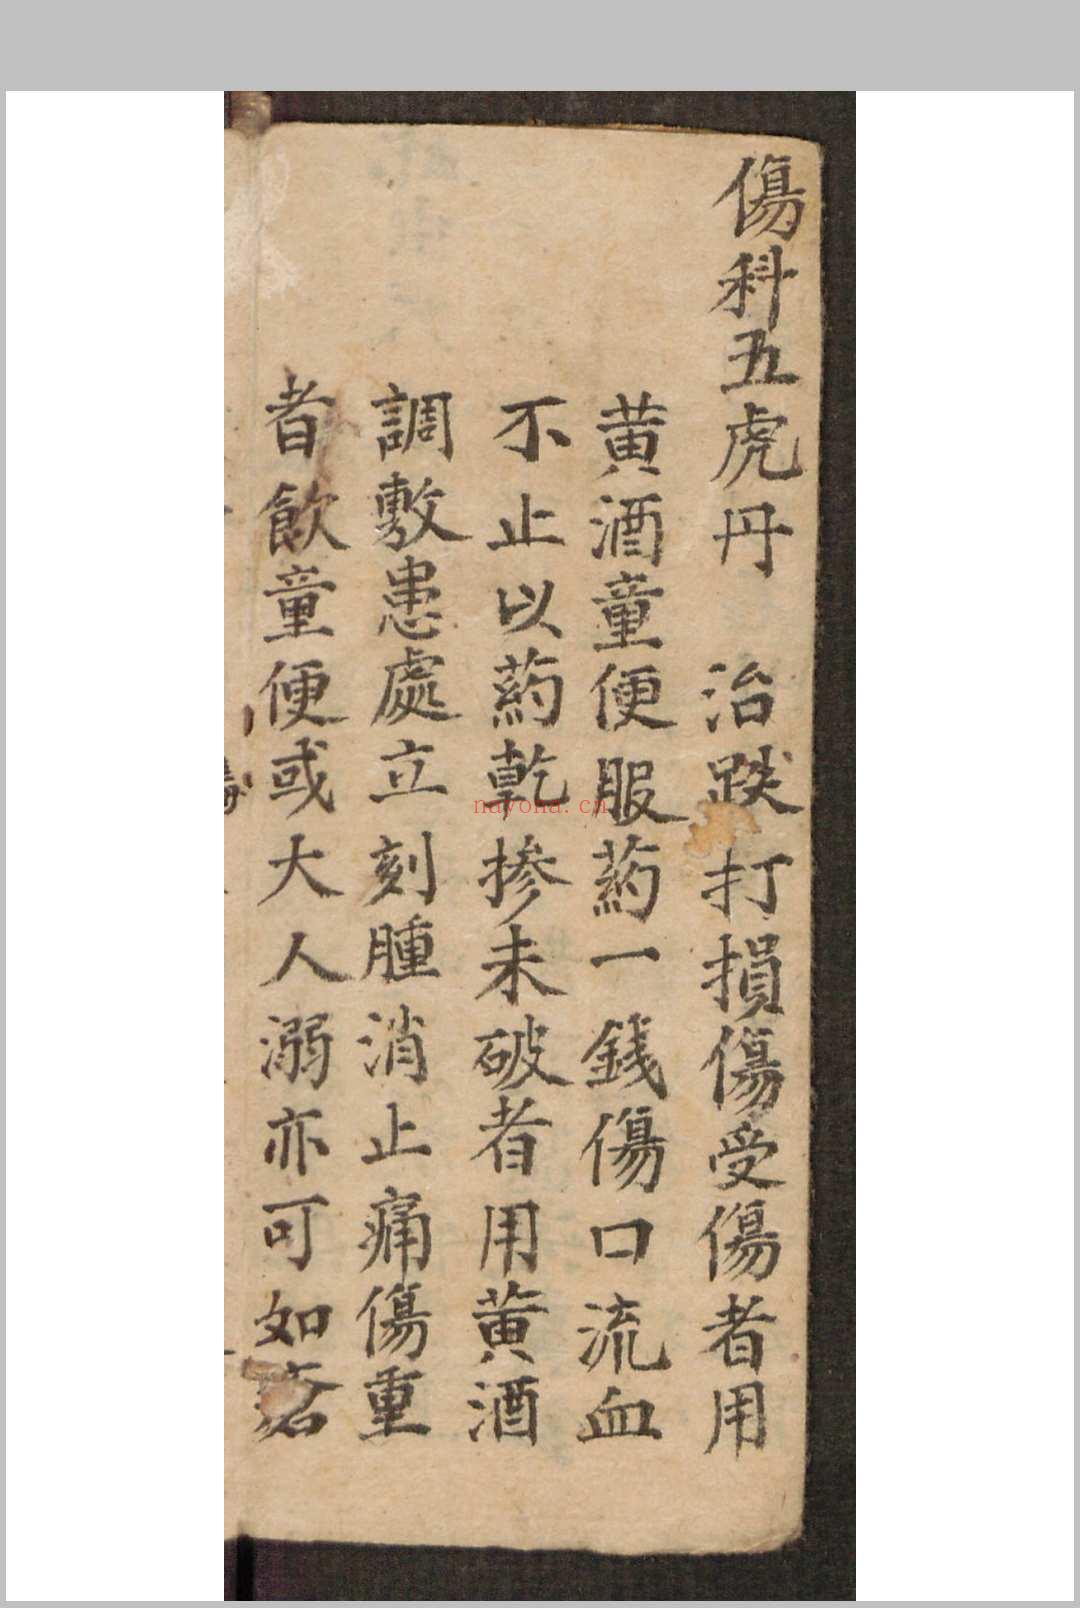 傷科五虎丹　治跌打損傷受傷者用
黄酒童便服葯一錢傷口流血
不止以葯乾掺未破者用黄酒
調敷患處立刻腫消止痛傷重
者飲童便或大人溺亦可如
nayona.cn